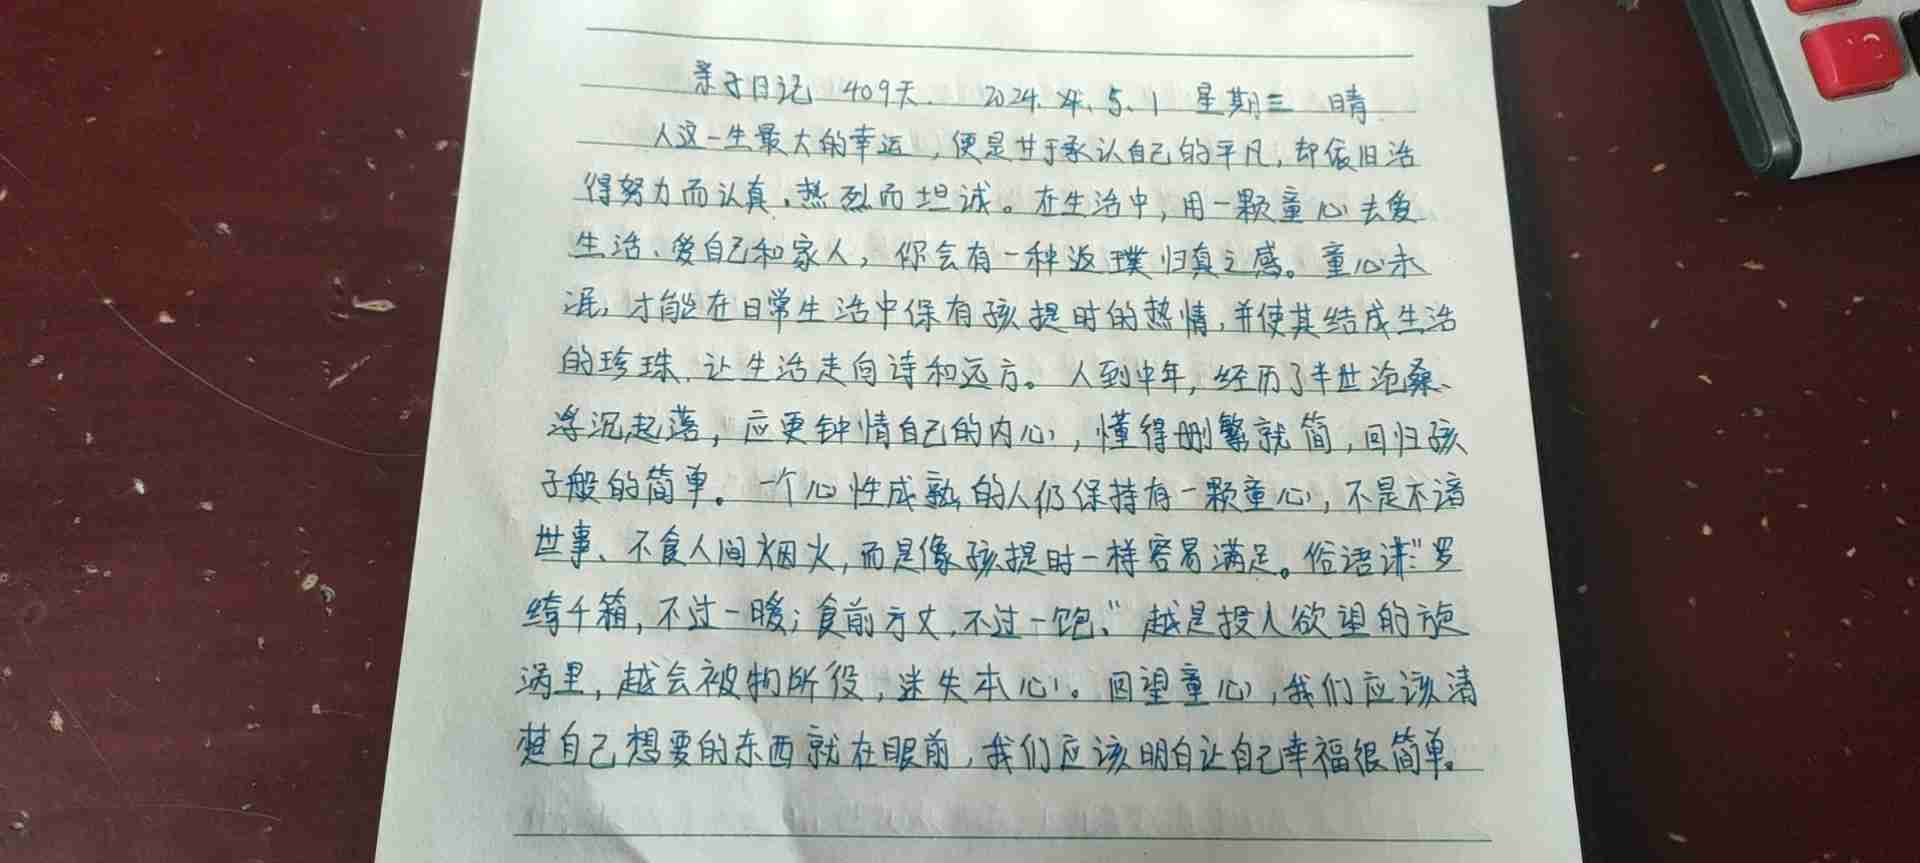 亲子日记 409天. 2024.4.5.1 星期三 晴
人这一生最大的幸运,便是甘于承认自己的平凡,却依旧活
得努力而认真,热烈而坦诚。在生活中,用一颗童心去爱
生活、爱自己和家人,你会有一种返璞归真之感。童心未
泯,才能在日常生活中保有孩提时的热情,并使其结成生活
的珍珠.让生活走向诗和远方。人到中年,经历了半世沧桑、
浮沉起落,应更钟情自己的内心,懂得删繁就简,回归孩
子般的简单。一个心性成熟的人仍保持有一颗童心,不是不谙
世事、不食人间烟火,而是像孩提时一样容易满足。俗语讲:"罗
绮千箱,不过一暖;食前方丈,不过一饱、"越是投入欲望的旋
涡里,越会被物所役,迷失本心。回望童心,我们应该清
楚自己想要的东西就在眼前,我们应该明白让自己幸福很简单。